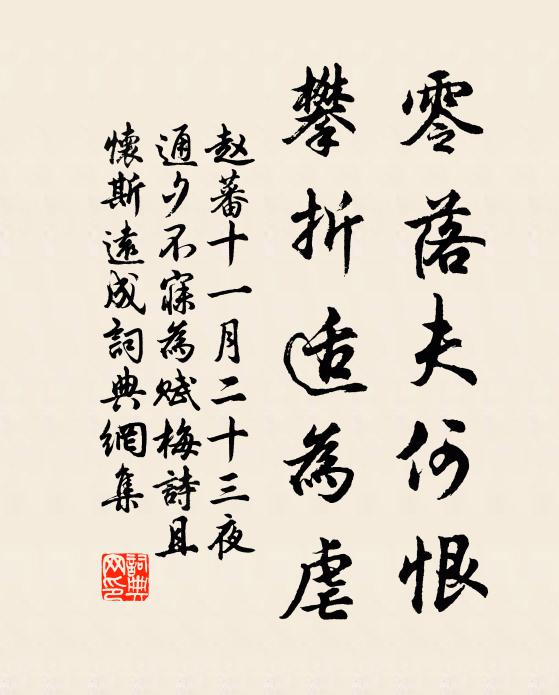 零落夫何恨
攀折适為虐
赵蕃十一月二十三夜
通夕不寐為赋梅詩且
懷斯遠成詞典網集
詞典网印